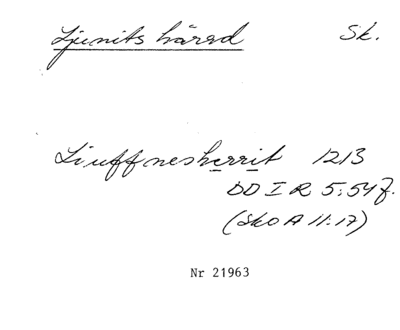 Ljunits härad Sk.
Liuffnesherrit 1213
DD I R 5:54 f.
(SkO A 11:17)
Nr 21963